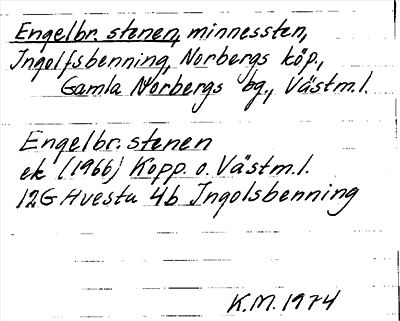 Engelbr. stenen, minnessten,
Ingolfsbenning, Norbergs köp.,
Gamla Norbergs bg., Västm.l.
Engelbr. stenen
ek (1966) Kopp. o. Västm.l.
12G Avesta 4b Ingolsbenning
K.M. 1974